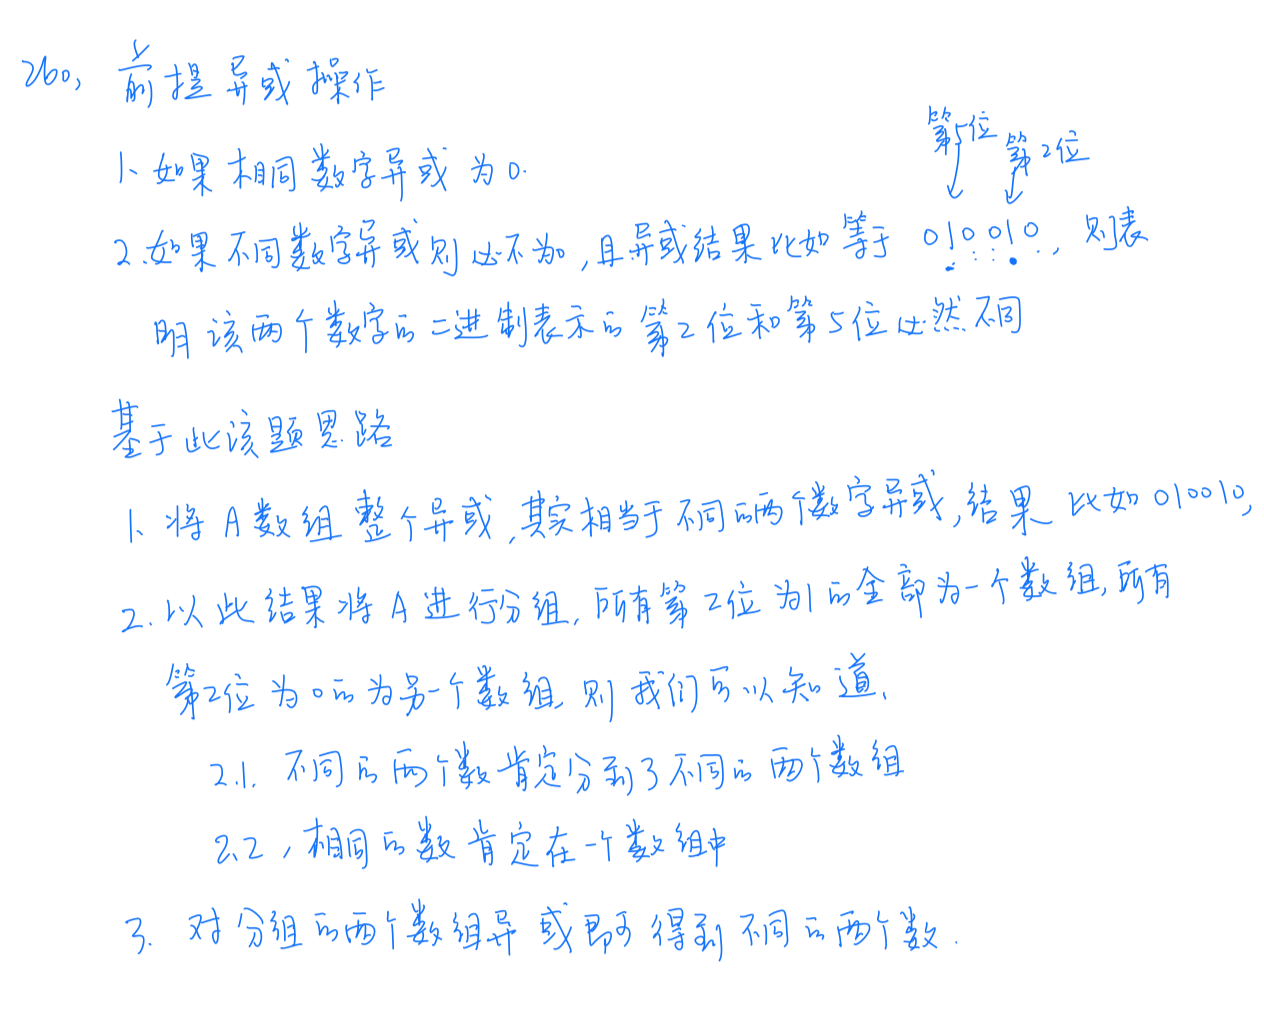 260, 前提异或操作
第5位
第2位
1、如果相同数字异或为0.
2.如果不同数字异或则必不为0,且异或结果比如等于 010010, 则表
明该两个数字的二进制表示的第2位和第5位必然不同
基于此该题思路
1、将A数组整个异或,其实相当于不同的两个数字异或,结果比如010010,
2.以此结果将A进行分组,所有第2位为1的全部为一个数组,所有
第2位为0的为另一个数组,则我们可以知道,
2.1. 不同的两个数肯定分到了不同的两个数组
2.2,相同的数肯定在一个数组中
3. 对分组的两个数组异或即可得到不同的两个数.